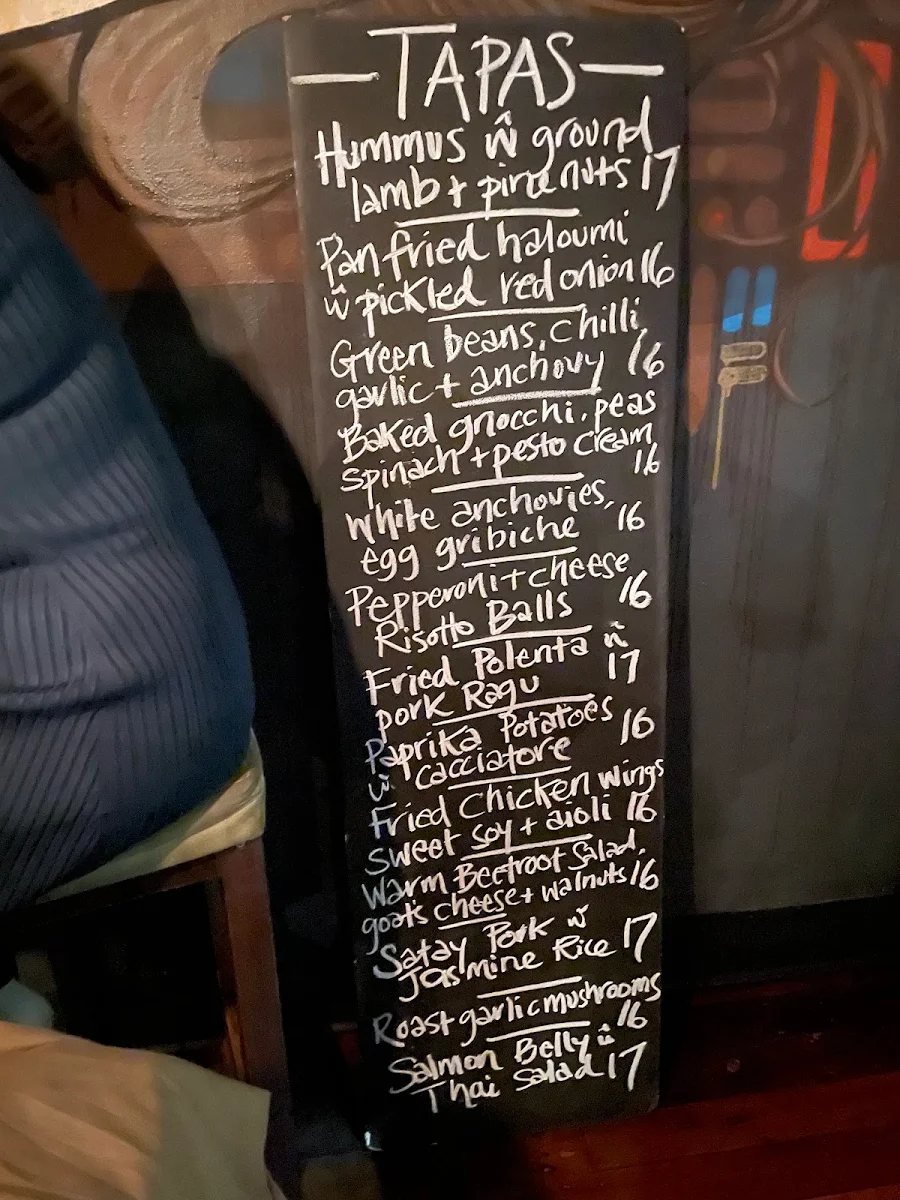 — TAPAS —
Hummus w̃ ground
lamb + pine nuts 17
Pan fried haloumi
w̃ pickled red onion 16
Green beans, chilli,
garlic + anchovy 16
Baked gnocchi, peas
spinach + pesto cream
16
White anchovies,
egg gribiche 16
Pepperoni + cheese
Risotto Balls 16
Fried Polenta w̃
pork Ragu 17
Paprika Potatoes
w̃ cacciatore 16
Fried Chicken wings
Sweet soy + aioli 16
Warm Beetroot Salad,
goats cheese + walnuts 16
Satay Pork w̃
Jasmine Rice 17
Roast garlic mushrooms
16
Salmon Belly w̃
Thai Salad 17